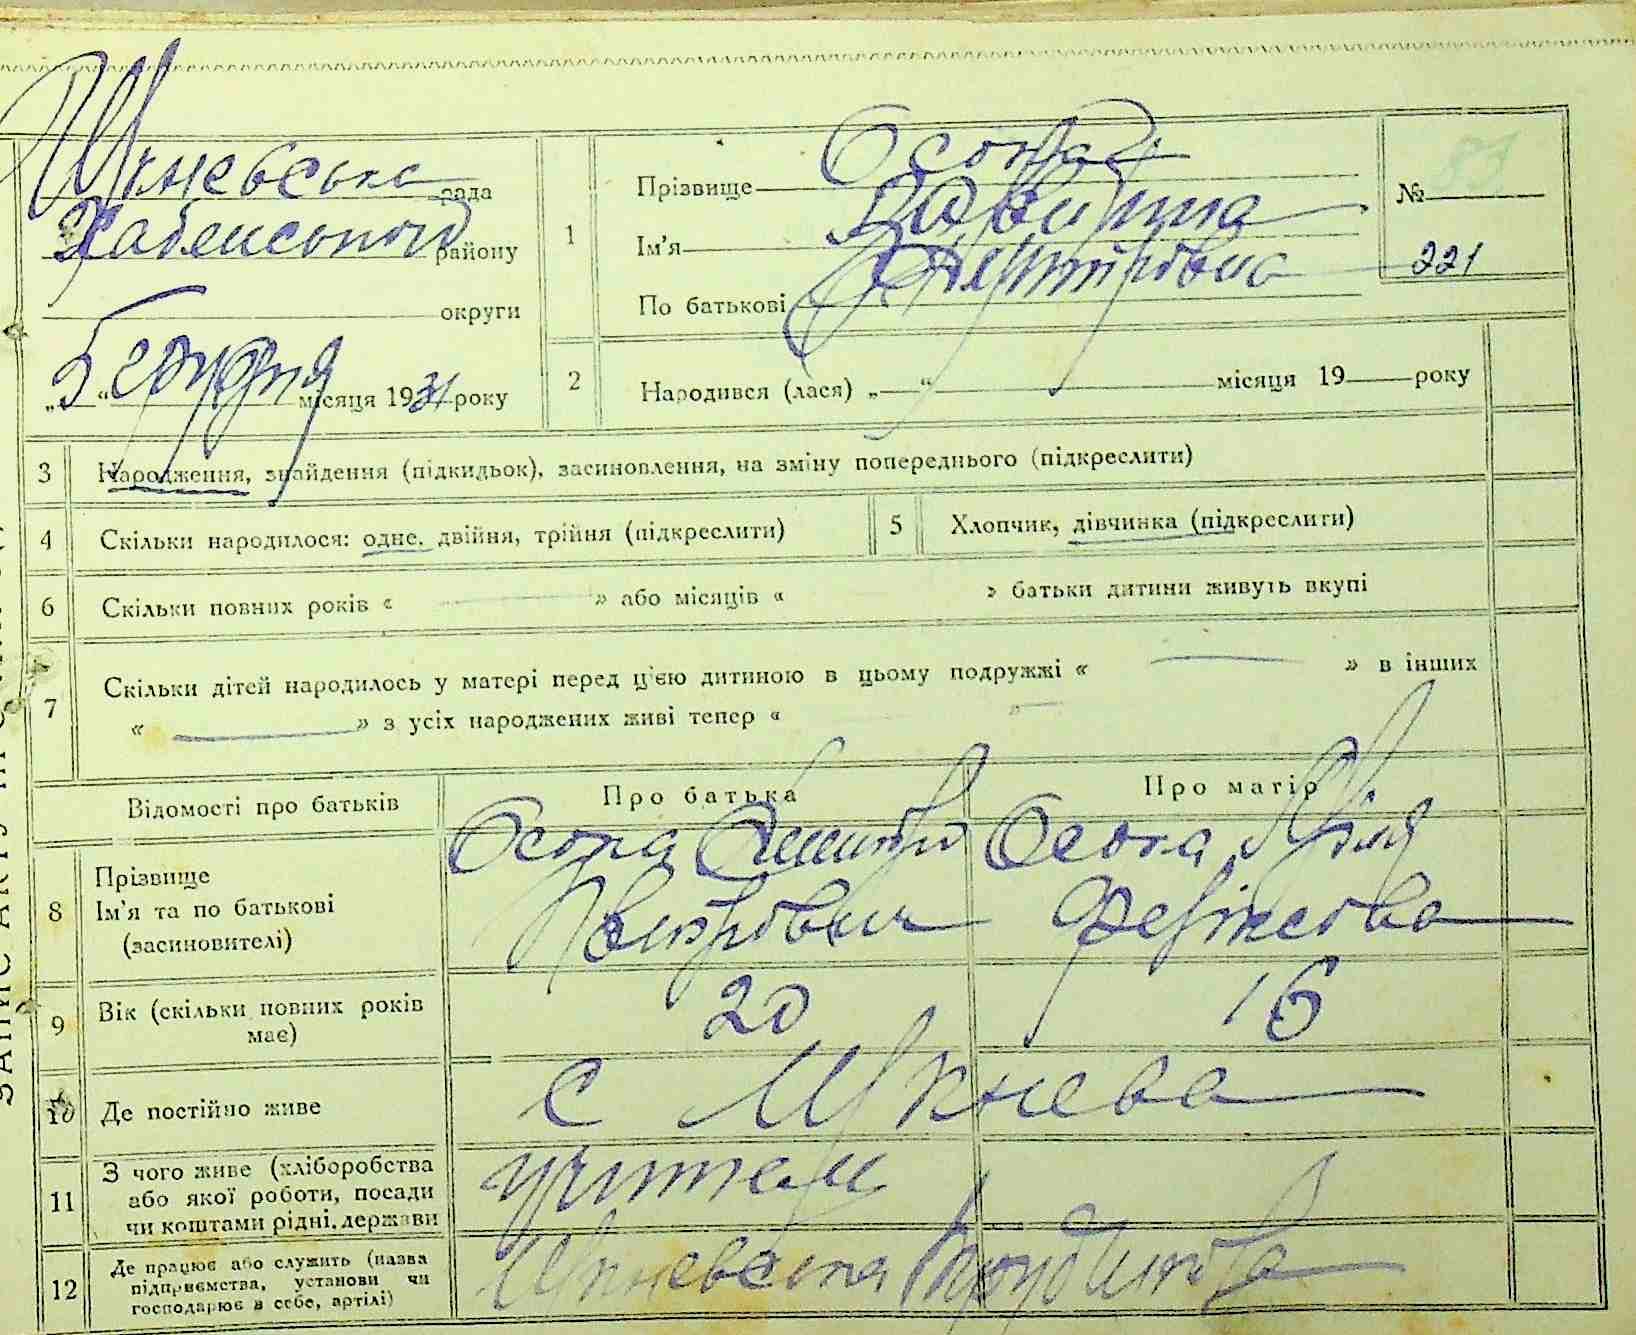 рада
Хабенського району
округи
„5" грудня місяця 1931 року
1
Прізвище Осока
Ім'я
По батькові Дмитрівна
№
221
2
Народився (лася) „ " місяця 19 року
3 Народження, знайдення (підкидьок), засиновлення, на зміну попереднього (підкреслити)
4 Скільки народилося: одне, двійня, трійня (підкреслити)
5 Хлопчик, дівчинка (підкреслити)
6 Скільки повних років « » або місяців « » батьки дитини живуть вкупі
7 Скільки дітей народилось у матері перед цією дитиною в цьому подружжі « » в інших
« » з усіх народжених живі тепер « »
Відомості про батьків
Про батька
Про матір
8 Прізвище
Ім'я та по батькові
(засиновителі)
Осока Дмитро
Осока Юлія
9 Вік (скільки повних років
має)
20
16
10 Де постійно живе
с
11 З чого живе (хліборобства
або якої роботи, посади
чи коштами рідні, держави
учитель
12 Де працює або служить (назва
підприємства, установи чи
господарює в себе, артілі)